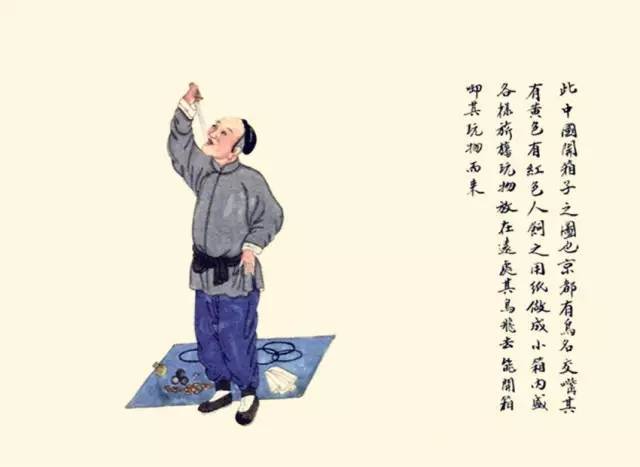 此中國開箱子之圖也京都有鳥名交嘴其
有黃色有紅色人飼之用紙做成小箱內盛
各樣旂舊玩物放在遠處其鳥飛去能開箱
啣其玩物而來